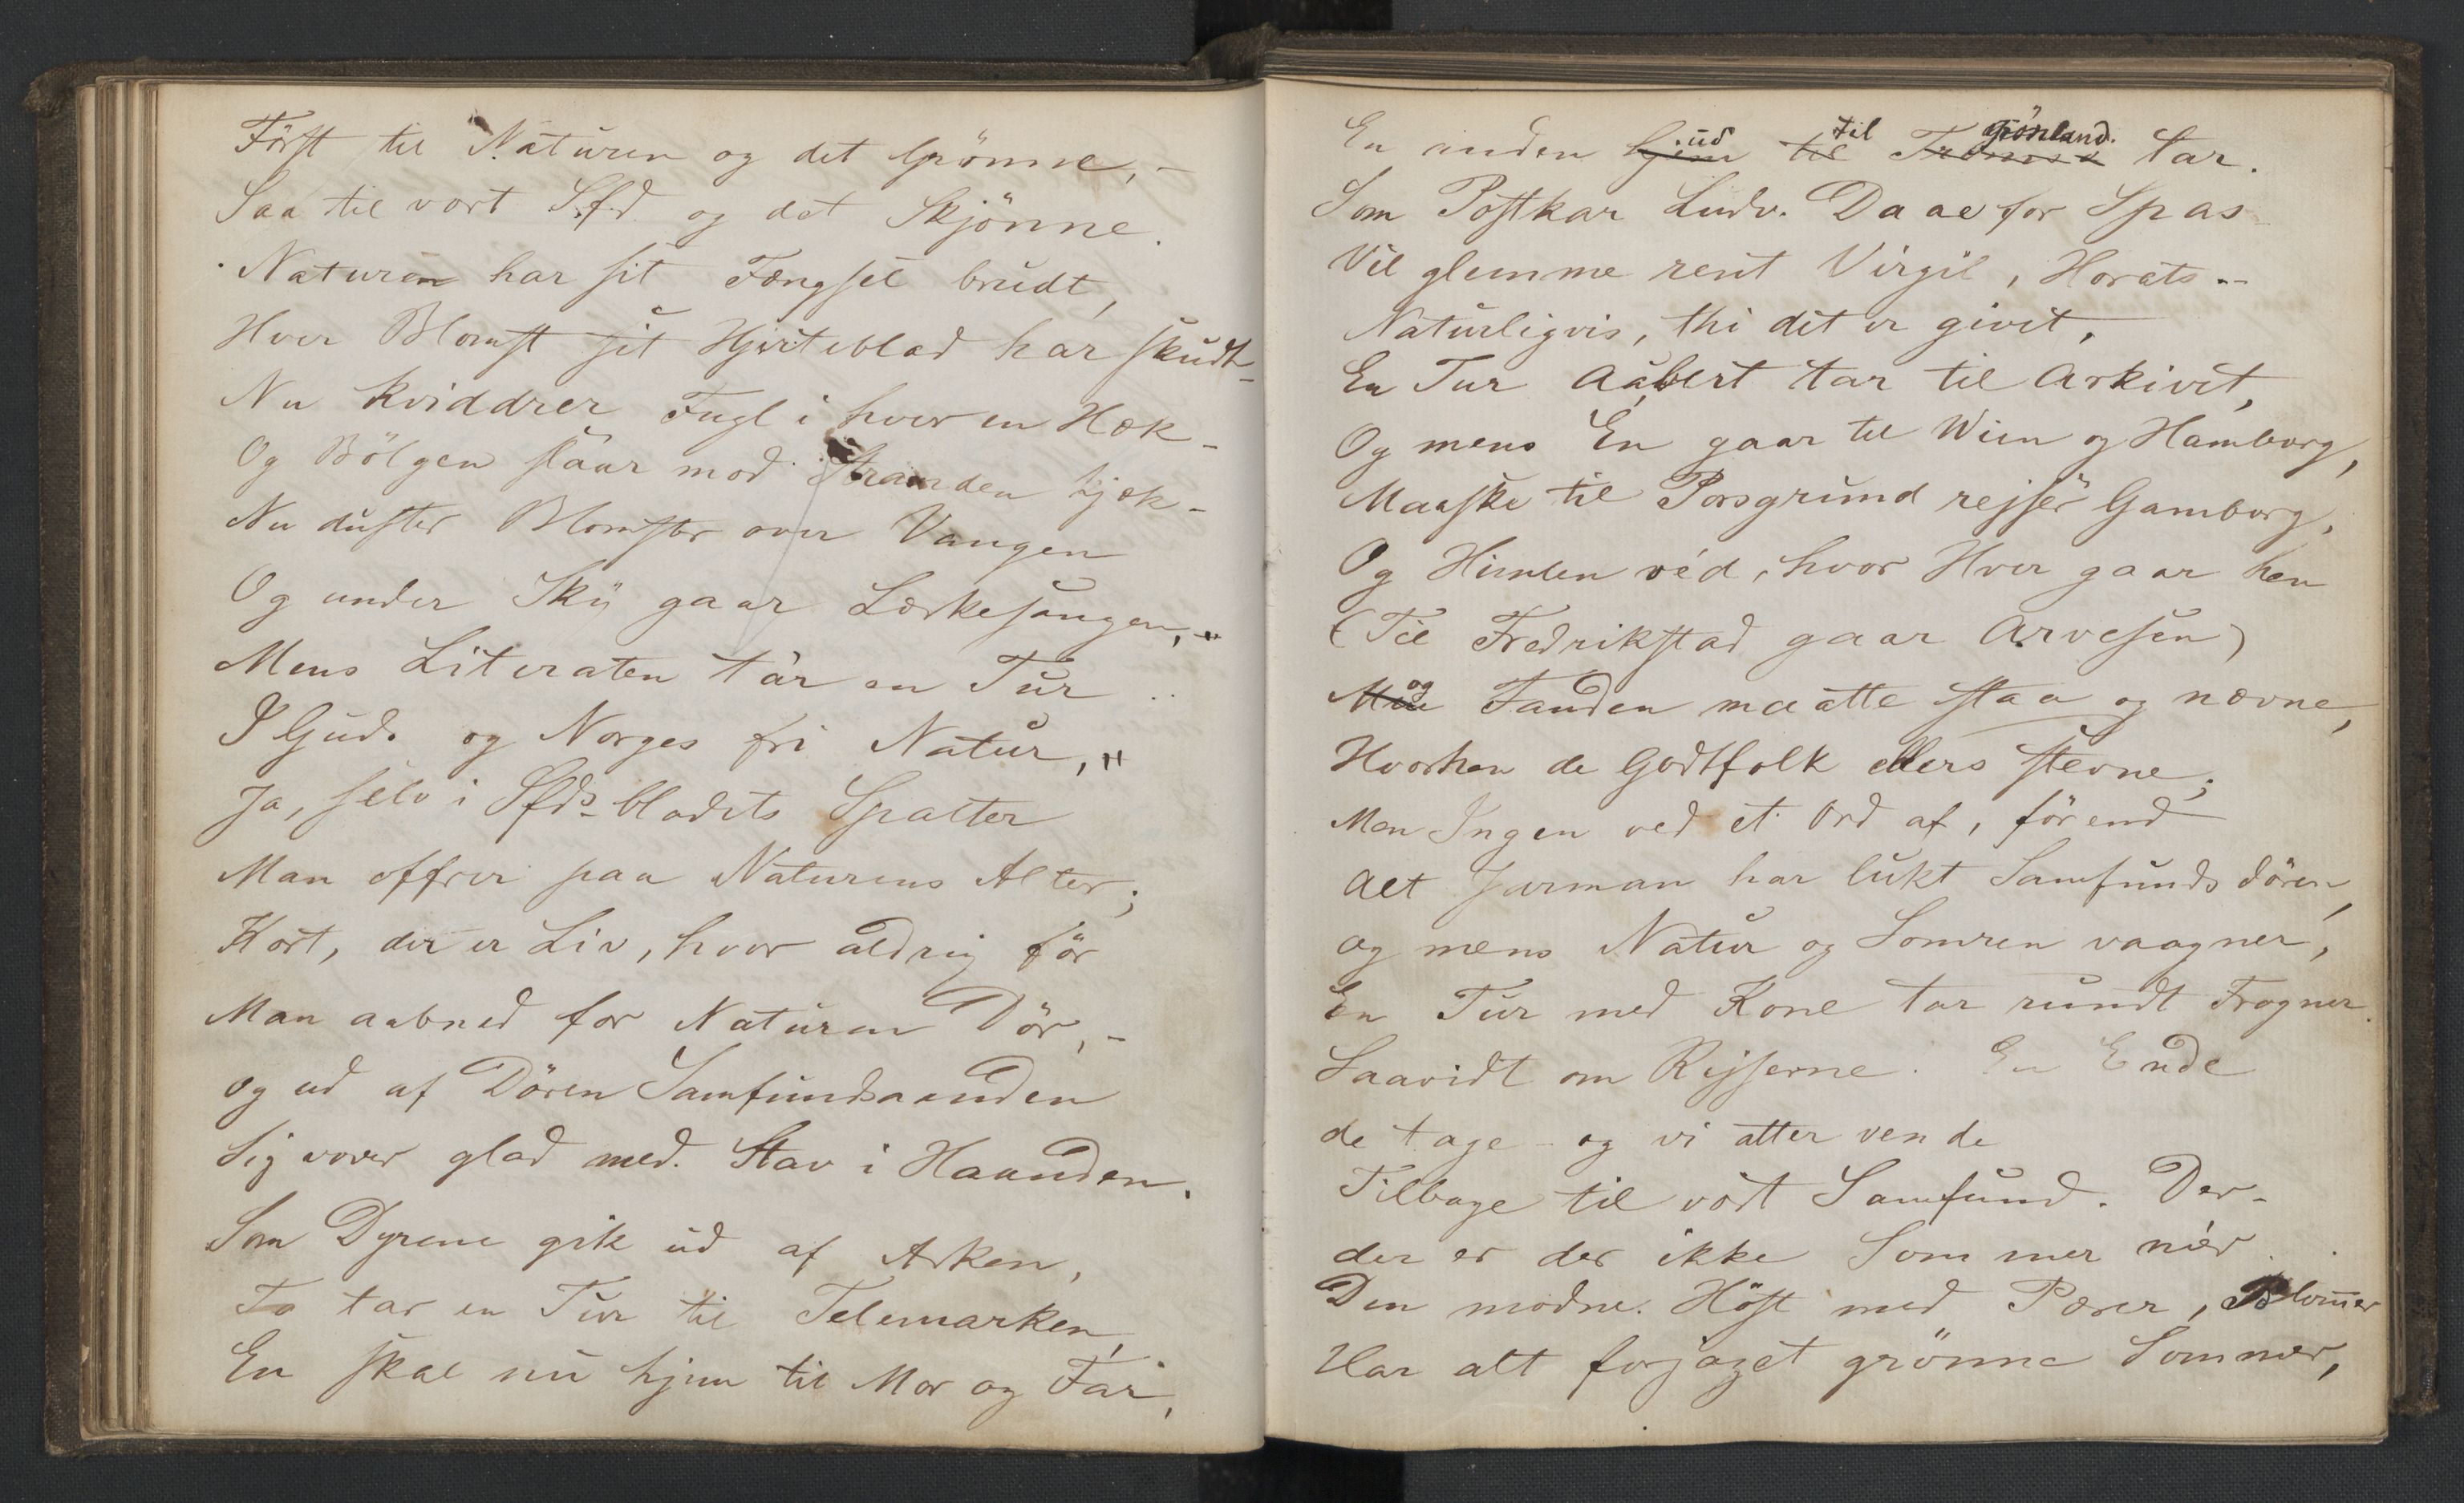 Först til Naturen og det Grönne, –
Saa til vort Sfd. og det Skjönne.
Naturen har sit Fængsel brudt,
Hver Blomst sit Hjerteblad har skudt –
Nu kviddrer Fugl i hver en Hæk –
Og Bölgen slaar mod Stranden kjæk –
Nu dufter Blomster over Vangen
Og under Sky gaar Lærkesangen, –"
Mens Literaten tar en Tur ..
I Guds og Norges fri Natur,"
Ja, selv i Sfds-bladets Spalter
Man offrer paa Naturens Alter;
Kort, der er Liv, hvor aldrig för
Man aabned for Naturen Dör, –
og ud af Dören Samfundsaanden
Sig vover glad med Stav i Haanden.
Som Dyrene gik ud af Arken,
To tar en Tur til Telemarken,
En skal nu hjem til Mor og Far,
En anden hjem ud til til Tromsö Grönland. tar.
Som Postkar Ludv. Daae for Spas
Vil glemme rent Virgil, Horats –
Naturligvis, thi det er givet,
En Tur Aabert tar til Arkivet,
Og mens En gaar til Wien og Hamborg,
Maaske til Porsgrund rejser Gamborg,
Og Himlen véd, hvor Hver gaar hen
(Til Fredrikstad gaar Arvesen)
og Fanden maatte staa og nævne,
Hvorhen de Godtfolk ellers stevne;
Men Ingen ved et Ord af, förend
Alt Furman har lukt Samfundsdören,
og mens Natur og Somren vaagner,
En Tur med Kone tar rundt Frogner.
Saavidt om Rejserne. En Ende
de tage – og vi atter vende
Tilbage til vort Samfund. Der –
der er der ikke Sommer mér.
Den modne Höst med Pærer, Blommer
Har alt forjaget grönne Sommer,